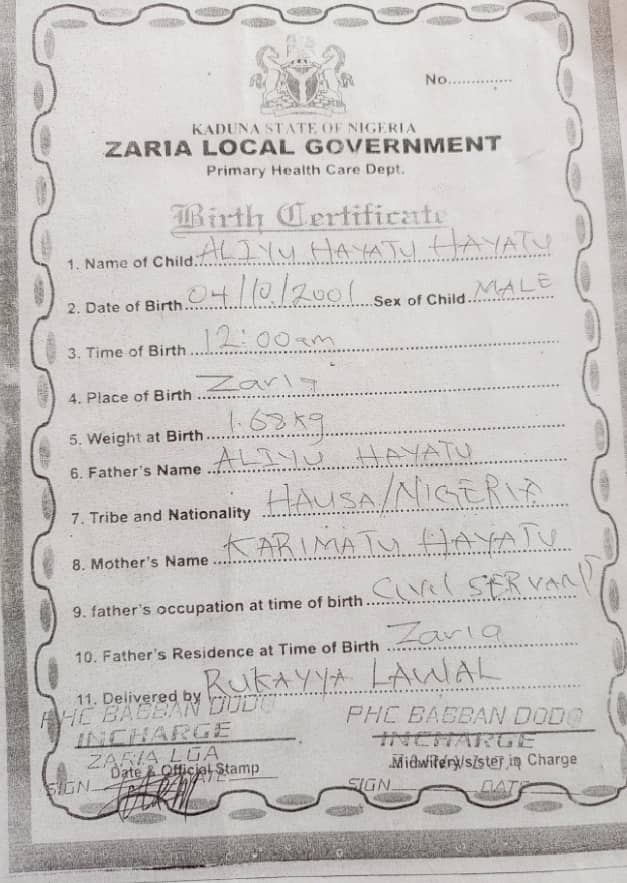 No..............
KADUNA STATE OF NIGERIA
ZARIA LOCAL GOVERNMENT
Primary Health Care Dept.
Birth Certificate
1. Name of Child ALIYU HAYATU HAYATU
2. Date of Birth 04/10/2001 Sex of Child MALE
3. Time of Birth 12:00am
4. Place of Birth Zaria
5. Weight at Birth 1.68kg
6. Father's Name ALIYU HAYATU
7. Tribe and Nationality HAUSA/NIGERIA
8. Mother's Name KARIMATU HAYATU
9. father's occupation at time of birth Civil SERVANT
10. Father's Residence at Time of Birth Zaria
11. Delivered by RUKAYYA LAWAL
PHC BABBAN DODO PHC BABBAN DODO
INCHARGE INCHARGE
ZARIA LGA
Date & Official Stamp Midwifery/sister in Charge
SIGN DATE SIGN DATE